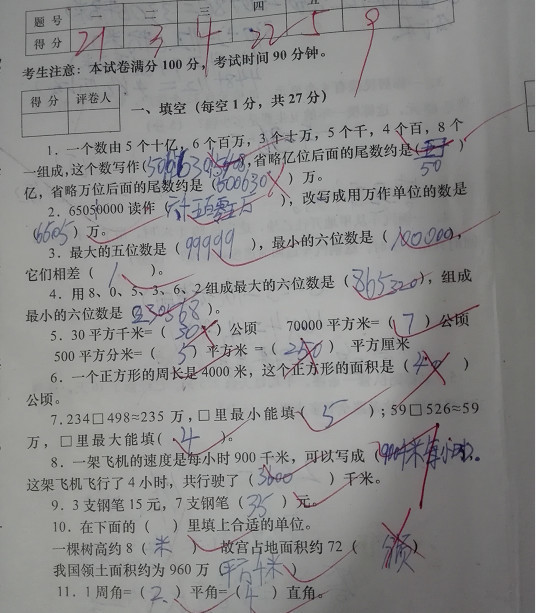 题 号 一 二 三 四 五
得 分 21 3 4 22 5 9
考生注意：本试卷满分 100 分，考试时间 90 分钟。
得 分 评卷人
一、填空（每空 1 分，共 27 分）
1．一个数由 5 个十亿，6 个百万，3 个十万，5 个千，4 个百，8 个
一组成,这个数写作( ),省略亿位后面的尾数约是( 50 )
亿，省略万位后面的尾数约是（500630）万。
2．65050000 读作（ ），改写成用万作单位的数是
（6605）万。
3．最大的五位数是（99999），最小的六位数是（100000），
它们相差（1）。
4．用 8、0、5、3、6、2 组成最大的六位数是（865320），组成
最小的六位数是（ ）。
5．30 平方千米=（30）公顷 70000 平方米=（7）公顷
500 平方分米=（5）平方米 =（250）平方厘米
6．一个正方形的周长是 4000 米，这个正方形的面积是（40）
公顷。
7.234□498≈235 万，□里最小能填（5）；59□526≈59
万，□里最大能填（4）。
8．一架飞机的速度是每小时 900 千米，可以写成（900千米每小时）。
这架飞机飞行了 4 小时，共行驶了（3600）千米。
9．3 支钢笔 15 元，7 支钢笔（35）元。
10．在下面的（ ）里填上合适的单位。
一棵树高约 8（米） 故宫占地面积约 72（ ）
我国领土面积约为 960 万（平方千米）
11．1 周角=（2）平角=（4）直角。